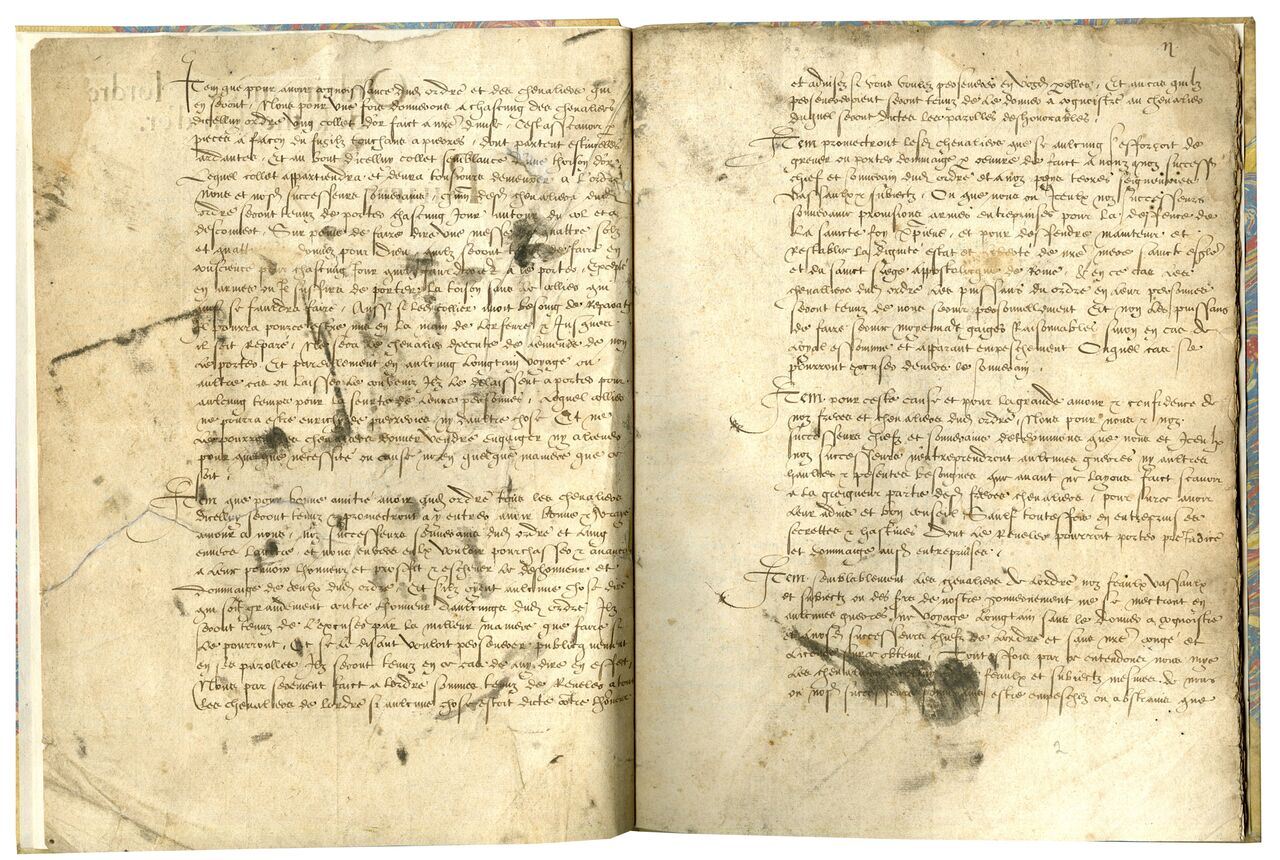 Item que pour avoir cognoissance dud ordre et des chevaliers qui
en seront, Nous pour une fois donnerons a chascung des chevaliers
dicelluy ordre ung collet dor faict a nre devise, Cest assavoir p
pieces a facon de fuzilz touchans a pierres, dont partent estincelles
ardantes, Et au bout dicelluy collet semblance dune thoison dor
Lequel collet appartiendra et devra tousiours demeurer a lordre
nous et nosd successeurs souverains, chevaliers dud
ordre seront tenuz de porter chascung Jour autour du col et a
descouvert, Sur peine de faire dire une messe de quattre solz
et quatt donnez pour Dieu, quilz seront de faire en
conscience pour chascung Jour quilz fauldront a le porter, Excepté
en armes ou il suffira de porter la toison sans le collier qui
ainsi le fauldra faire, Aussi si led collier avoit besoing de reparat
Il pourra pource estre mis en la main de lorfevre & Jusques
il soit reparé, Ne sera le chevalier execute de lamende de non
le porter, Et pareillement en aulcung loingtain voyage ou
aultre cas ou laisser le convenir Ilz le delaissent a porter pour
aulcung temps pour la seurté de leurs personnes, Lequel collier
ne pourra estre enrichi de pierreries ny daultre chose Et ne
le pourront les chevaliers donner vendre engaiger ny aliener
pour quelque necessité ou cause ny en quelque maniere que ce
soit,
Item que pour bonne amitié avoir aud ordre tous les chevaliers
dicelluy seront tenuz & promectront a y entrer avoir bonne & vraye
amour a nous, noz successeurs souverains dud ordre et lung
envers laultre et nous envers eulx vouloir pourchasser & avancer
a leur povoir lhonneur et proffict & eschever le deshonneur et
dommaige de ceulx dud ordre, Et silz oyent aulcune chose dire
qui soit grandement contre lhonneur daulcungs dud ordre, Ilz
seront tenuz de lexcuser par la meilleur maniere que faire
le pourront, Et si le disant vouloit perseverer publicquement
en ses parolles Ilz seront tenuz en ce cas de luy dire en effect,
Nous par serement faict a lordre sommes tenuz de reveler a tous
les chevaliers de lordre si aulcune chose estoit dicte contre lhonneur
et advisez si vous voulez perseverer en voz parolles, Et au cas quilz
perseveroient seront tenuz de le donner a cognoistre au chevalier
duquel seront dictes les parolles deshonorables,
Item promectront lesd chevaliers que se aulcung sefforçoit de
grever ou porter dommaige & oeuvre de faict a nous noz successeurs
chief et souverain dud ordre et a noz pays terres seigneuries
vassaulx & subiectz, Ou que nous ou Iceulx noz successeurs
souverains prenissions armes entreprinses pour la deffence de
la saincte foy Xpienne, et pour deffendre maintenir et
restablir la dignité estat et de nre mere saincte esglise
et du sainct siege appostolicque de Rome, & en ce cas les
chevaliers dud ordre, les puissans dud ordre en leur personnes
seront tenuz de nous servir personnellement Et non les puissans
de faire servir moyennant gaiges raisonnables sinon en cas de
loyal essonne et apparant empeschement Ouquel cas se
pourront excuser devers le souverain,
Item pour ceste cause et pour la grande amour & confidence de
noz freres et chevaliers dud ordre, Nous pour nous & noz
successeurs chiefz et souverains determinons que nous et Iceulx
noz successeurs nentreprendront aulcunes guerres ny aultres
haultes & pesantes besongnes que avant ne layons faict scavoir
a la greigneur partie desd freres chevaliers, pour surce avoir
leur advis et bon conseil Saulf toutesfois en entreprinses
secrettes & hastives Dont le reveler pourroit porter preiudice
et dommaige ausd entreprinses,
Item, semblablement les chevaliers de lordre noz feaulx vassaulx
et subiectz ou des frs de nostre gouvernement ne se mectront en
aulcunes guerres, ny voyage loingtain sans le donner a cognoistre
et a nosd successeurs chiefz de lordre et sans nre congé et
licence surce obtenu, Toutesfois par ce entendons nous mye
les chevaliers feaulx et subiectz mesmes de nous
ou nosd successeurs estre empeschez ou abstrains que
2